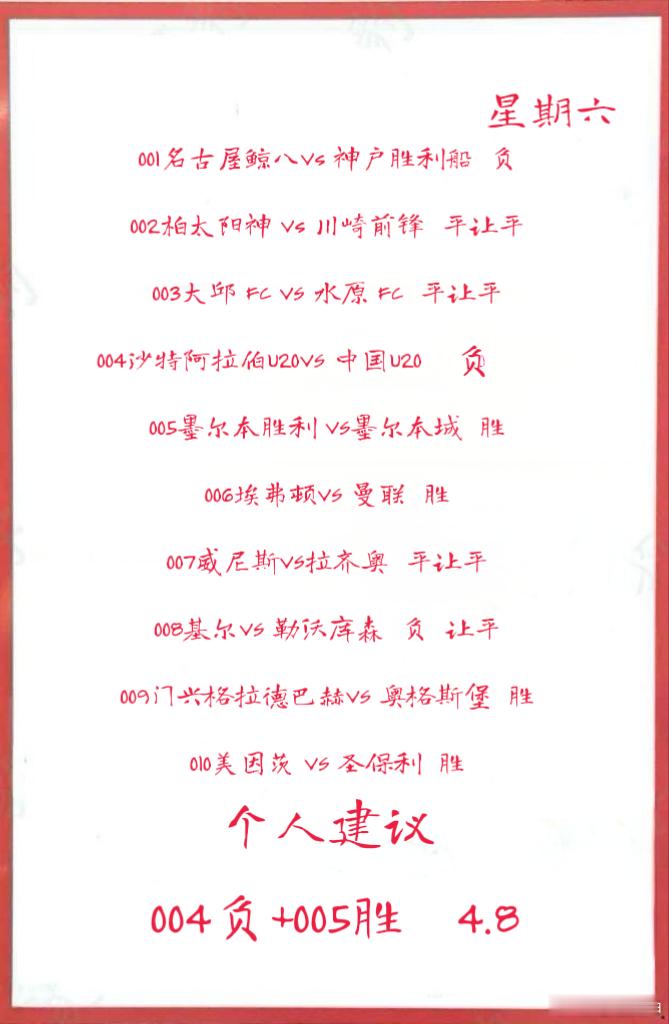 星期六
001名古屋鲸八vs神户胜利船 负
002柏太阳神 vs 川崎前锋 平让平
003大邱FC vs 水原FC 平让平
004沙特阿拉伯U20vs 中国U20 负
005墨尔本胜利vs墨尔本城 胜
006埃弗顿vs 曼联 胜
007威尼斯vs拉齐奥 平让平
008基尔vs 勒沃库森 负 让平
009门兴格拉德巴赫vs 奥格斯堡 胜
010美因茨 vs 圣保利 胜
个人建议
004负+005胜 4.8